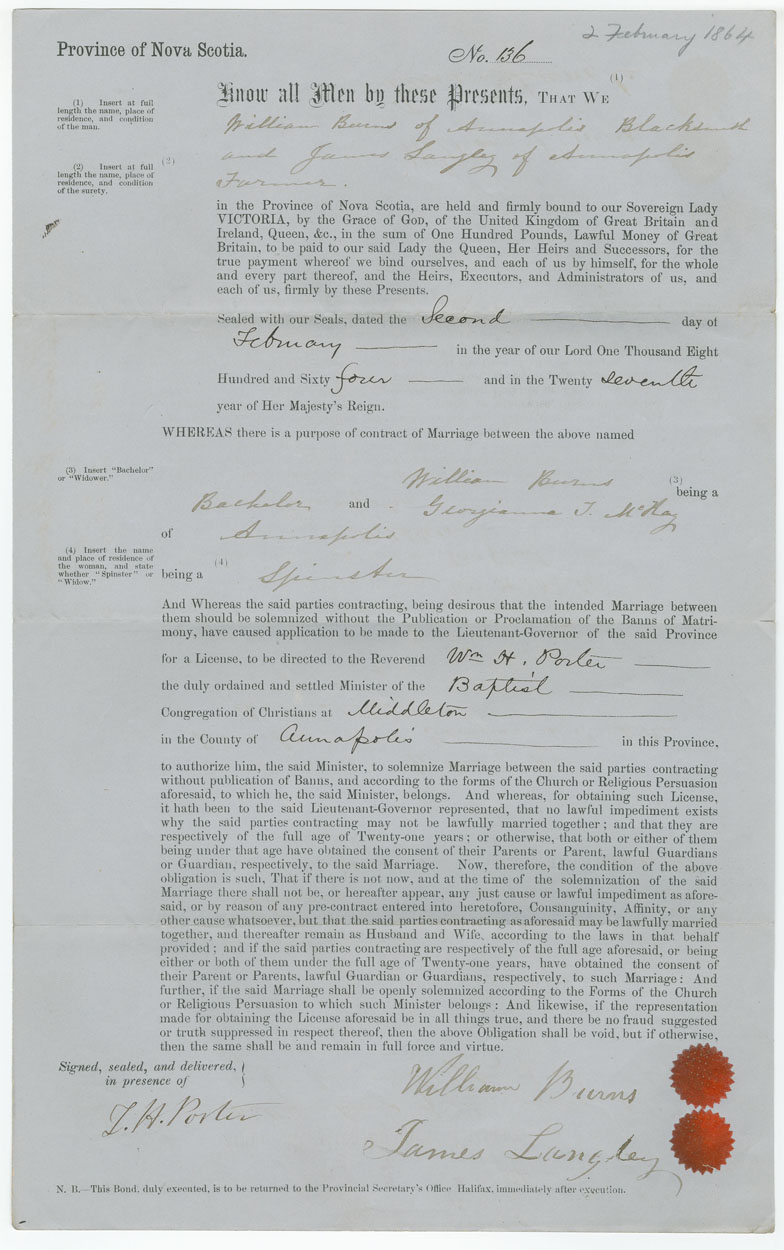 2 February 1864
Province of Nova Scotia.
No. 136
(1)
Know all Men by these Presents, THAT WE
(1) Insert at full
length the name, place of
residence, and condition
of the man.
William Burns of Annapolis Blacksmith
(2) Insert at full
length the name, place of
residence, and condition
of the surety.
(2)
and James Langley of Annapolis
Farmer.
in the Province of Nova Scotia, are held and firmly bound to our Sovereign Lady
VICTORIA, by the Grace of GOD, of the United Kingdom of Great Britain and
Ireland, Queen, &c., in the sum of One Hundred Pounds, Lawful Money of Great
Britain, to be paid to our said Lady the Queen, Her Heirs and Successors, for the
true payment whereof we bind ourselves, and each of us by himself, for the whole
and every part thereof, and the Heirs, Executors, and Administrators of us, and
each of us, firmly by these Presents.
Sealed with our Seals, dated the Second day of
February in the year of our Lord One Thousand Eight
Hundred and Sixty four and in the Twenty seventh
year of Her Majesty's Reign.
WHEREAS there is a purpose of contract of Marriage between the above named
(3) Insert "Bachelor"
or "Widower."
William Burns (3) being a
Bachelor and Georgianna T. McKay
of Annapolis
(4) Insert the name
and place of residence of
the woman, and state
whether "Spinster" or
"Widow."
(4)
being a Spinster
And Whereas the said parties contracting, being desirous that the intended Marriage between
them should be solemnized without the Publication or Proclamation of the Banns of Matri-
mony, have caused application to be made to the Lieutenant-Governor of the said Province
for a License, to be directed to the Reverend Wm H. Porter
the duly ordained and settled Minister of the Baptist
Congregation of Christians at Middleton
in the County of Annapolis in this Province,
to authorize him, the said Minister, to solemnize Marriage between the said parties contracting
without publication of Banns, and according to the forms of the Church or Religious Persuasion
aforesaid, to which he, the said Minister, belongs. And whereas, for obtaining such License,
it hath been to the said Lieutenant-Governor represented, that no lawful impediment exists
why the said parties contracting may not be lawfully married together; and that they are
respectively of the full age of Twenty-one years; or otherwise, that both or either of them
being under that age have obtained the consent of their Parents or Parent, lawful Guardians
or Guardian, respectively, to the said Marriage. Now, therefore, the condition of the above
obligation is such, That if there is not now, and at the time of the solemnization of the said
Marriage there shall not be, or hereafter appear, any just cause or lawful impediment as afore-
said, or by reason of any pre-contract entered into heretofore, Consanguinity, Affinity, or any
other cause whatsoever, but that the said parties contracting as aforesaid may be lawfully married
together, and thereafter remain as Husband and Wife, according to the laws in that behalf
provided; and if the said parties contracting are respectively of the full age aforesaid, or being
either or both of them under the full age of Twenty-one years, have obtained the consent of
their Parent or Parents, lawful Guardian or Guardians, respectively, to such Marriage: And
further, if the said Marriage shall be openly solemnized according to the Forms of the Church
or Religious Persuasion to which such Minister belongs: And likewise, if the representation
made for obtaining the License aforesaid be in all things true, and there be no fraud suggested
or truth suppressed in respect thereof, then the above Obligation shall be void, but if otherwise,
then the same shall be and remain in full force and virtue.
Signed, sealed, and delivered,
in presence of
William Burns
T. H. Porter
James Langley
N. B.—This Bond, duly executed, is to be returned to the Provincial Secretary's Office Halifax, immediately after execution.